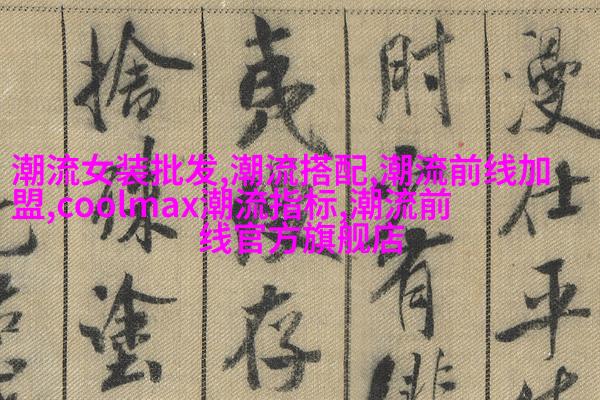 潮流女装批发,潮流搭配,潮流前线加
盟,coolmax潮流指标,潮流前
线官方旗舰店
漫 平
時 有
夷 存
捨 塗